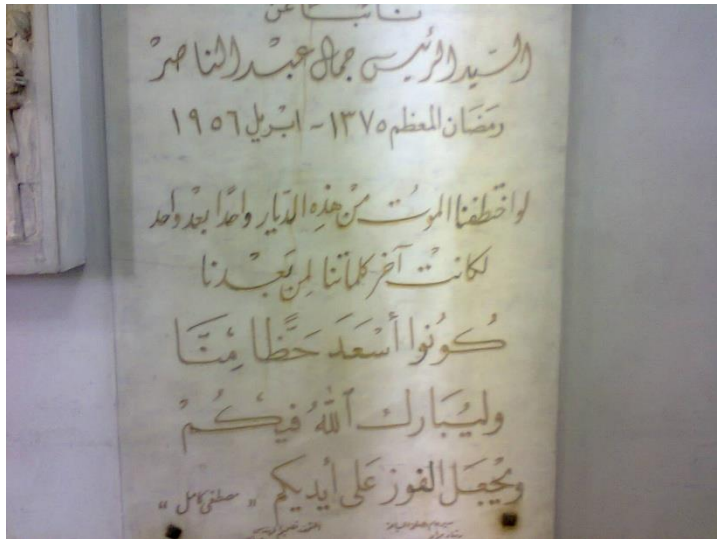 نائبًا عن
السيد الرئيس جمال عبد الناصر
رمَضَان المعظم ١٣٧٥ - ابريل ١٩٥٦
لواختطفنا الموت من هذِه الديَار واحدًا بعد واحد
لكانت آخر كلماتنا لمِن بَعْدنا
كُونُوا أسْعَدَ حَظًّا مِنَّا
وليُبَارك اللهُ فيكُمْ
ويجْعَل الفوز عَلى أيديكم " مصطفى كامل "